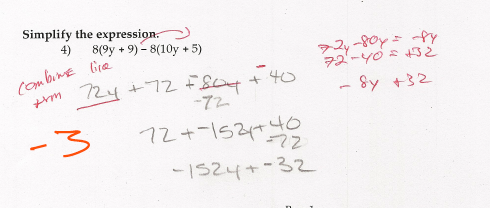 Simplify the expression.
4) 8(9y + 9) – 8(10y + 5)
combine like term
72y + 72 + -80y + -40
-72
72 + -152y + 40
-72
-152y + -32
-3
72y - 80y = -8y
72 - 40 = +32
- 8y + 32